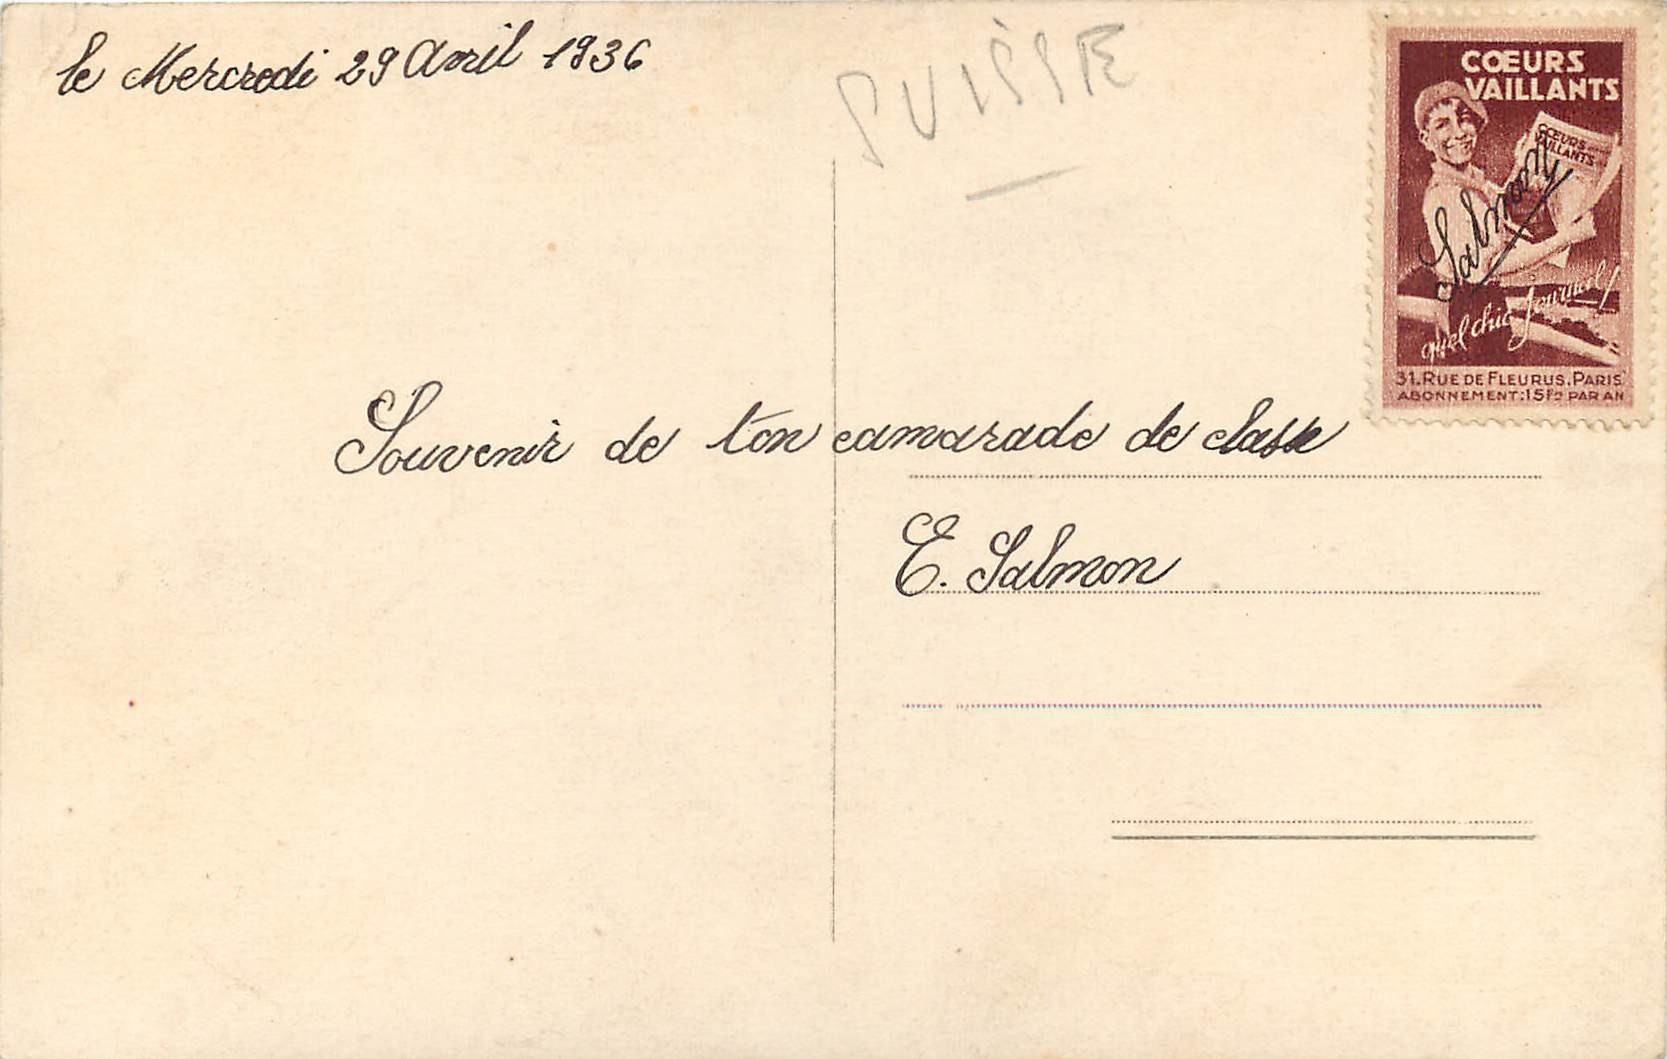 le Mercredi 29 Avril 1936
SUISSE
COEURS
VAILLANTS
COEURS
VAILLANTS
Salmon
quel chic journal!
31. RUE DE FLEURUS. PARIS
ABONNEMENT: 15Frs PAR AN
Souvenir de ton camarade de classe
E. Salmon